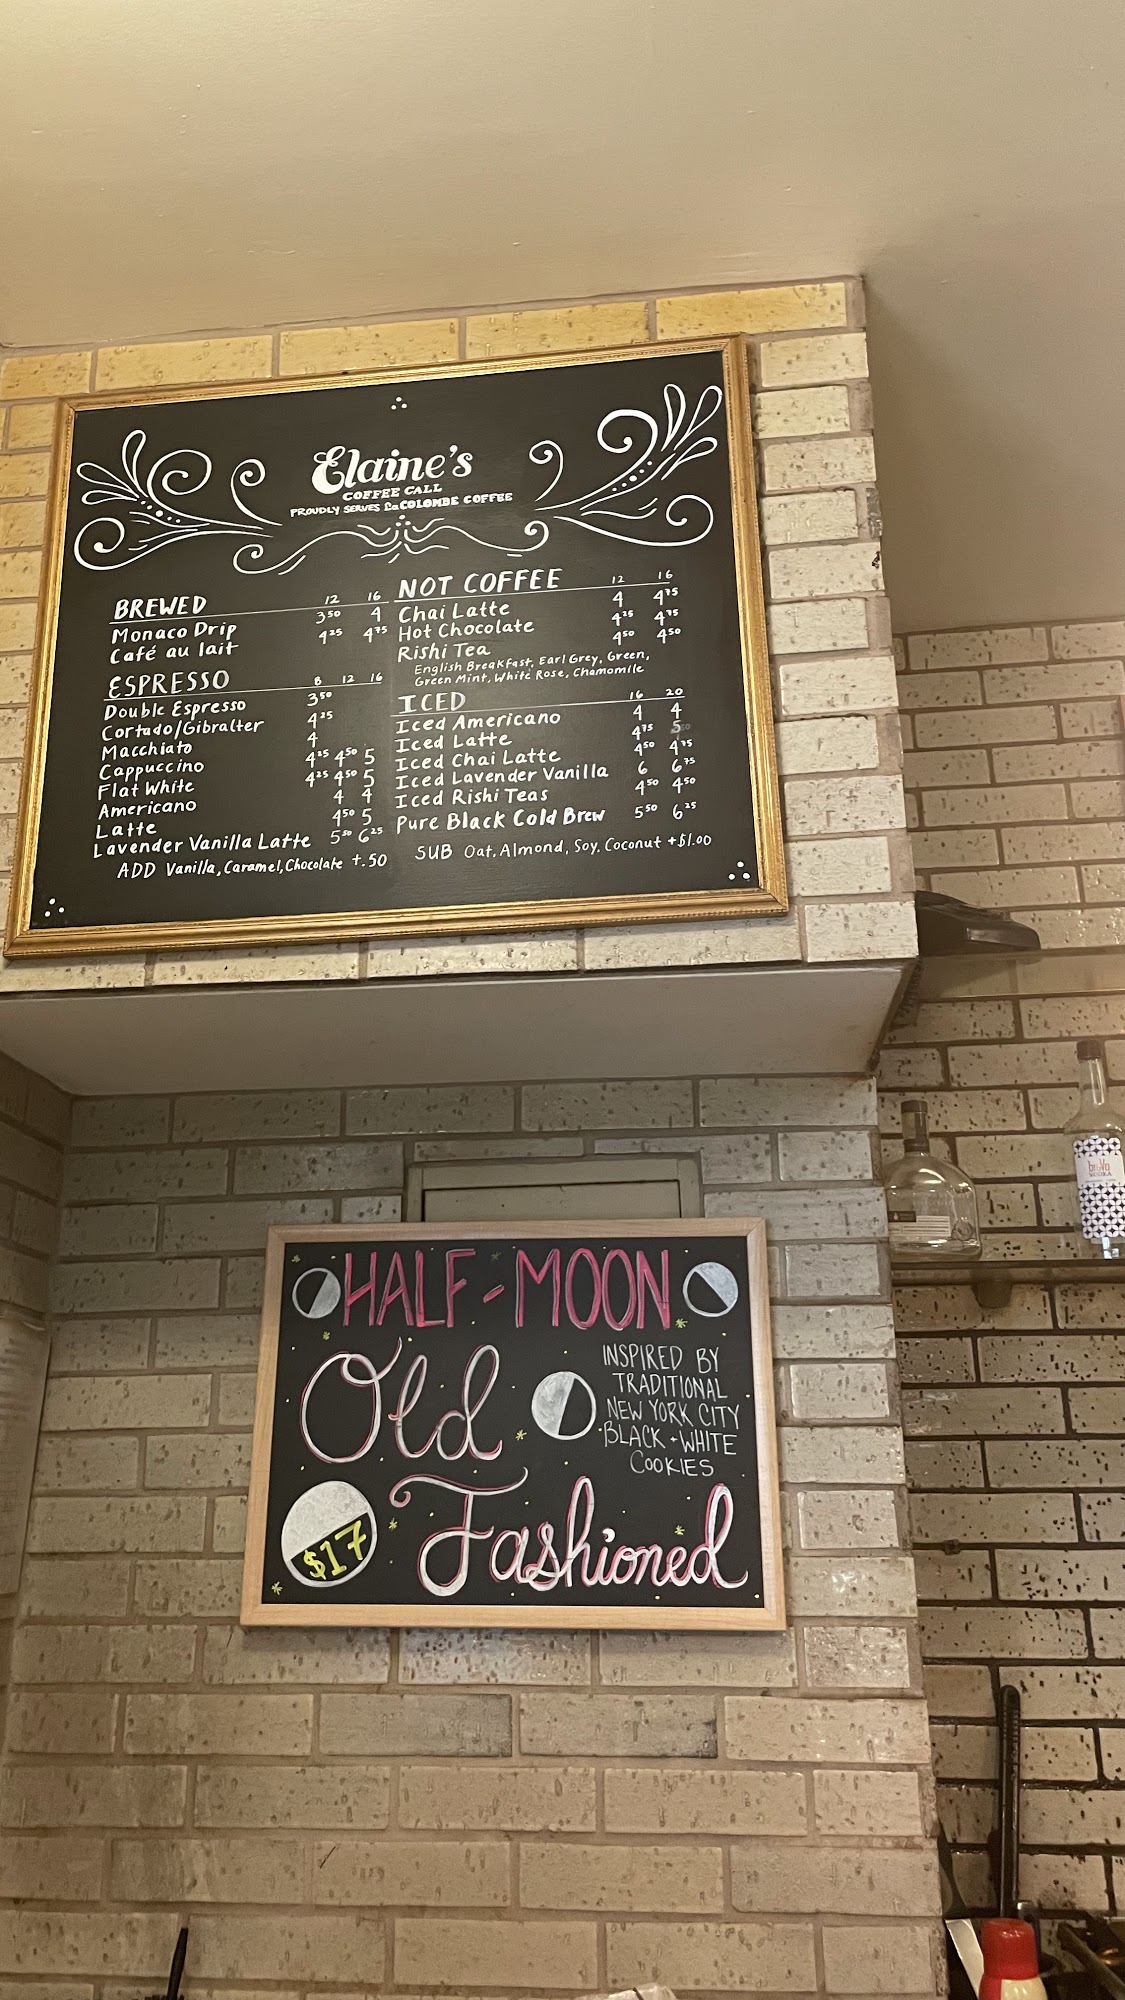 Elaine's
COFFEE CALL
PROUDLY SERVES La COLOMBE COFFEE
BREWED 12 16
Monaco Drip 3⁵⁰ 4
Café au lait 4²⁵ 4⁷⁵
ESPRESSO 8 12 16
Double Espresso 3⁵⁰
Cortado/Gibralter 4²⁵
Macchiato 4
Cappuccino 4²⁵ 4⁵⁰ 5
Flat White 4²⁵ 4⁵⁰ 5
Americano 4 4
Latte 4⁵⁰ 5
Lavender Vanilla Latte 5⁵⁰ 6²⁵
ADD Vanilla, Caramel, Chocolate +.50
NOT COFFEE 12 16
Chai Latte 4 4⁷⁵
Hot Chocolate 4²⁵ 4⁷⁵
Rishi Tea 4⁵⁰ 4⁵⁰
English Breakfast, Earl Grey, Green,
Green Mint, White Rose, Chamomile
ICED 16 20
Iced Americano 4 4
Iced Latte 4⁷⁵ 5
Iced Chai Latte 4⁵⁰ 4⁷⁵
Iced Lavender Vanilla 6 6⁷⁵
Iced Rishi Teas 4⁵⁰ 4⁵⁰
Pure Black Cold Brew 5⁵⁰ 6²⁵
SUB Oat, Almond, Soy, Coconut +$1.00
HALF-MOON
Old
Fashioned
INSPIRED BY
TRADITIONAL
NEW YORK CITY
BLACK + WHITE
COOKIES
$17
VODKA